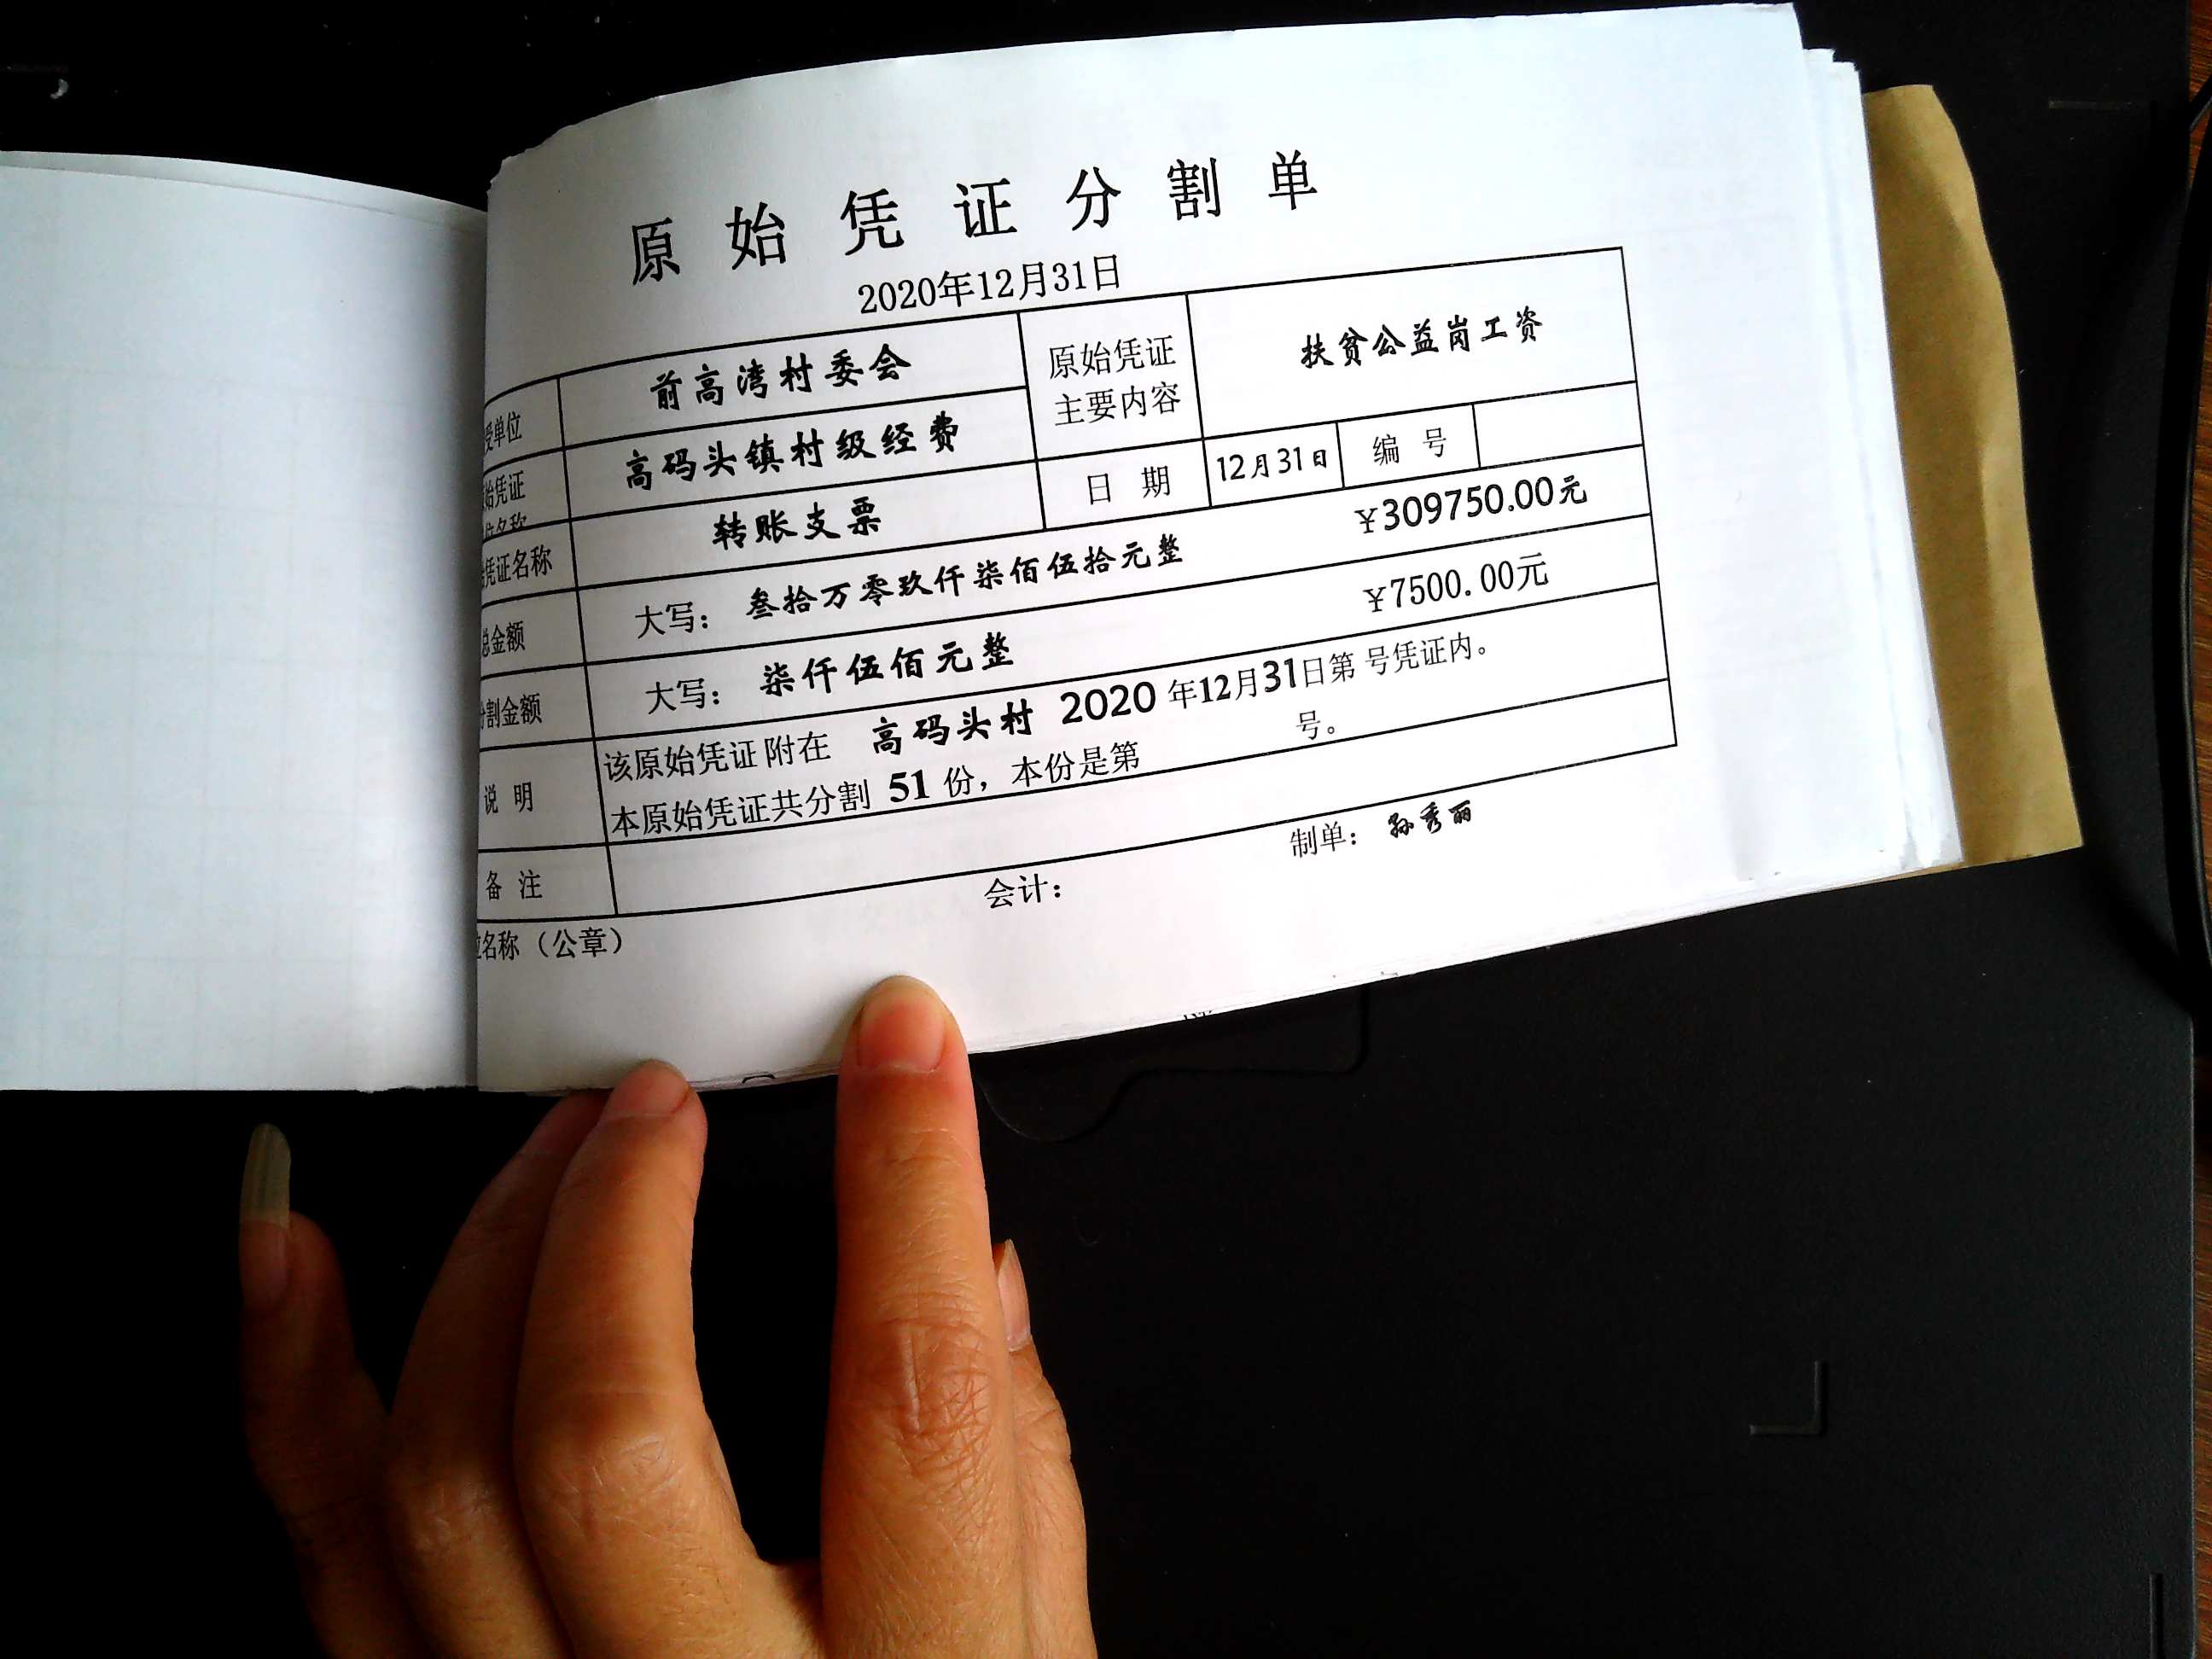 原始凭证分割单
2020年12月31日
受单位 前高湾村委会 原始凭证主要内容 扶贫公益岗工资
始凭证 高码头镇村级经费 日 期 12月31日 编 号
凭证名称 转账支票
总金额 大写: 叁拾万零玖仟柒佰伍拾元整 ¥309750.00元
割金额 大写: 柒仟伍佰元整 ¥7500.00元
说 明 该原始凭证附在 高码头村 2020 年12月31日第 号凭证内。
本原始凭证共分割 51 份，本份是第 号。
备 注
名称（公章） 会计: 制单: 孙秀丽